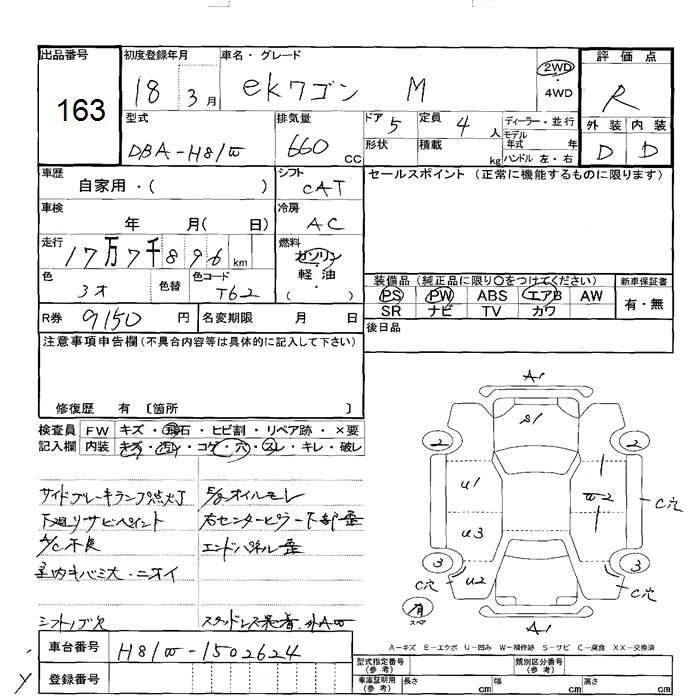 出品番号
163
初度登録年月
18 3月
車名・グレード
ekワゴン M
2WD
・
4WD
評価点
R
外装 内装
D D
型式
DBA-H81W
排気量
660 CC
ドア 5
定員 4 人
ディーラー・並行
モデル年式 年
形状
積載 kg
ハンドル 左・右
車歴
自家用・( )
シフト
CAT
セールスポイント (正常に機能するものに限ります)
車検
年 月( 日)
冷房
AC
走行
17万7千896 km
燃料
ガソリン
軽油
( )
色
色替
色コード
T62
装備品 (純正品に限り○をつけてください)
PS PW ABS エアB AW
SR ナビ TV カワ
新車保証書
有・無
R券 9150 円
名変期限 月 日
後日品
注意事項申告欄(不具合内容等は具体的に記入して下さい)
修復歴 有 〔箇所 〕
検査員
記入欄
FW キズ・飛石・ヒビ割・リペア跡・×要
内装 キズ・汚レ・コゲ・穴・スレ・キレ・破レ
サイドブレーキランプ点灯
下廻リサビペイント
A/C不良
室内キバミ大・ニオイ
シフトノブ欠
E/gオイルモレ
右センターピラー下部歪
エンドパネル歪
A1
S1
2 2
U1
W2
C穴
U3
3 3
C穴
U2
C穴
有
スペア
A1
A-キズ E-エクボ U-凹み W-補修跡 S-サビ C-腐食 XX-交換済
車台番号 H81W-1502624
登録番号
型式指定番号
(参考)
類別区分番号
(参考)
車庫証明用
(参考)
長さ cm
幅 cm
高さ cm